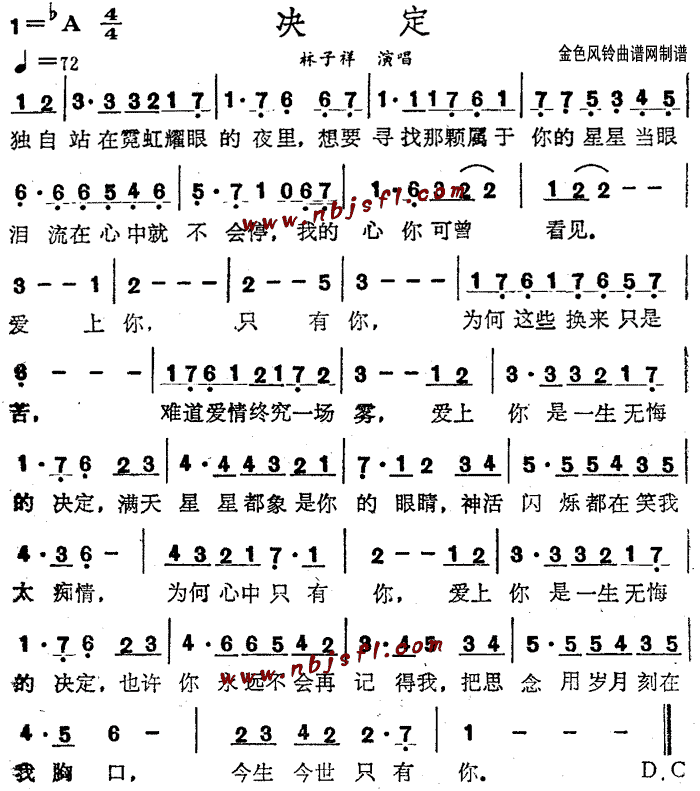 1=♭A 4/4 决 定
♩=72 林子祥 演唱 金色风铃曲谱网制谱
1 2 | 3·3 3 2 1 7 | 1·7 6 6 7 | 1·1 1 7 6 1 | 7 7 5 3 4 5 |
独自站在霓虹耀眼的夜里，想要寻找那颗属于你的星星当眼
6·6 6 5 4 6 | 5·7 1 0 6 7 | 1·6 3 2 2 | 1 2 2 - - |
泪流在心中就不会停，我的心你可曾看见。
www.nbjsfl.com
3 - - 1 | 2 - - - | 2 - - 5 | 3 - - - | 1 7 6 1 7 6 5 7 |
爱上你，只有你，为何这些换来只是
6 - - - | 1 7 6 1 2 1 7 2 | 3 - - 1 2 | 3·3 3 2 1 7 |
苦，难道爱情终究一场雾，爱上你是一生无悔
1·7 6 2 3 | 4·4 4 3 2 1 | 7·1 2 3 4 | 5·5 5 4 3 5 |
的决定，满天星星都象是你的眼睛，神活闪烁都在笑我
4·3 6 - | 4 3 2 1 7·1 | 2 - - 1 2 | 3·3 3 2 1 7 |
太痴情，为何心中只有你，爱上你是一生无悔
1·7 6 2 3 | 4·6 6 5 4 2 | 3·4 5 3 4 | 5·5 5 4 3 5 |
的决定，也许你永远不会再记得我，把思念用岁月刻在
www.nbjsfl.com
4·5 6 - | 2 3 4 2 2·7 | 1 - - ‖
我胸口，今生今世只有你。 D.C